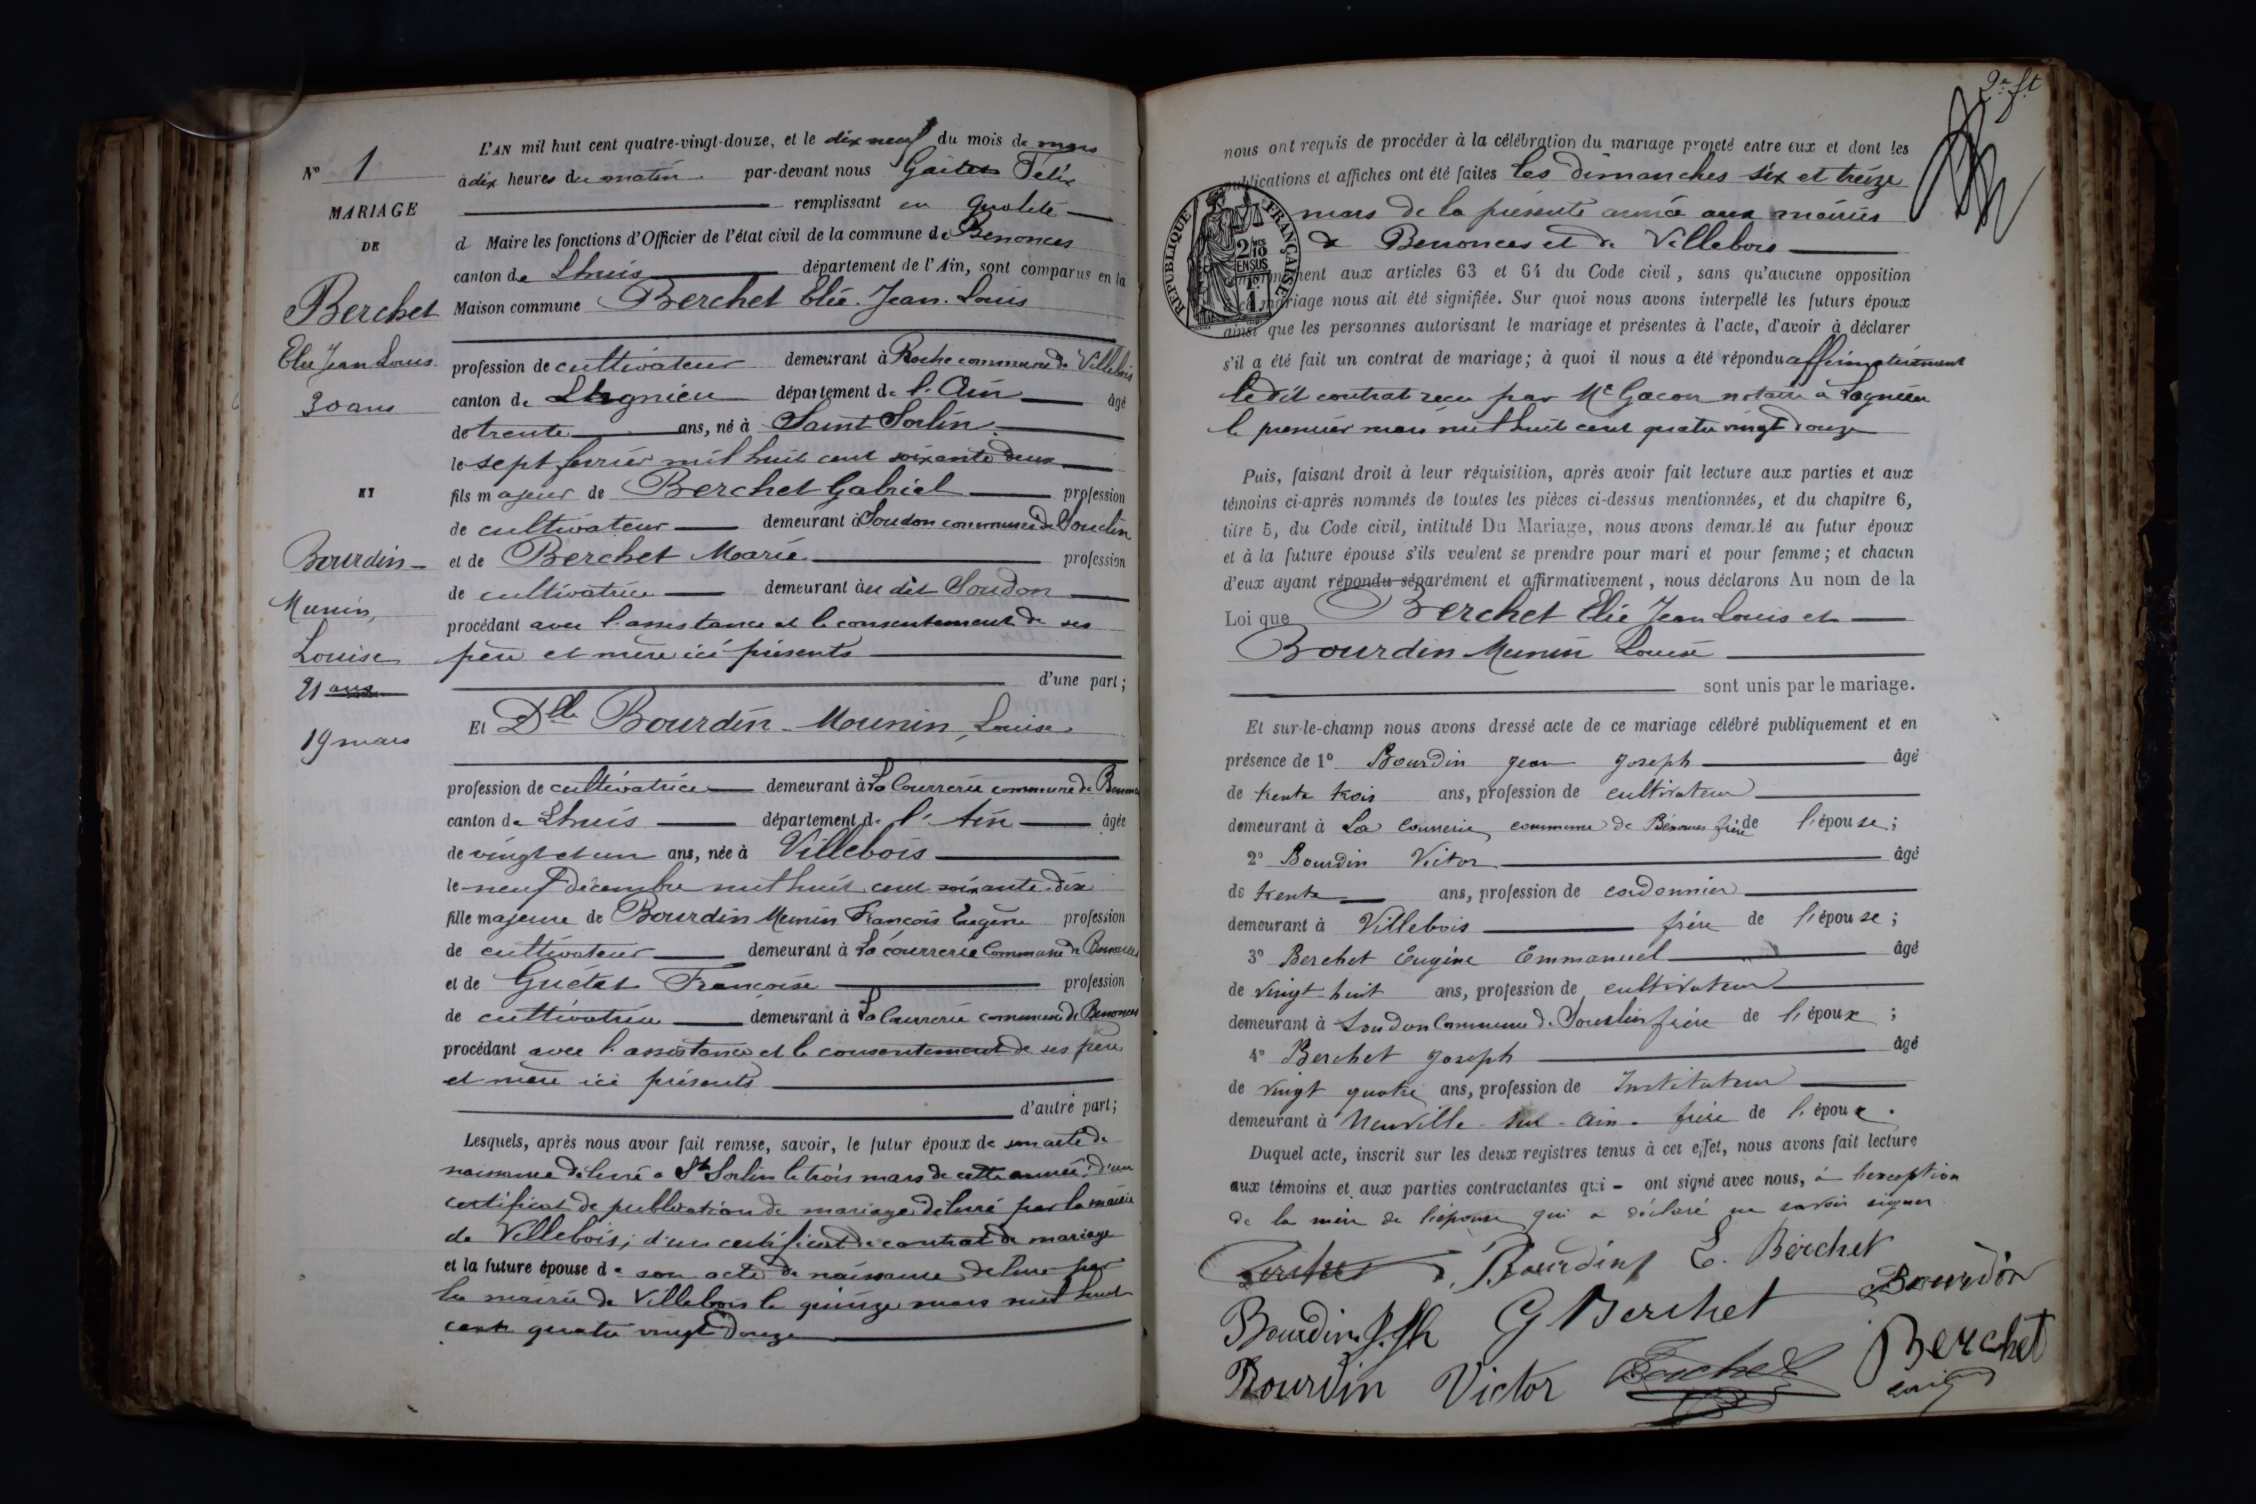 N° 1
MARIAGE
DE
Berchet
Elie Jean Louis
30 ans
ET
Bourdin-
Munin,
Louise
21 ans
19 mars
L'AN mil huit cent quatre-vingt-douze, et le dix neuf du mois de mars
à dix heures du matin par-devant nous Félix
remplissant en qualité
d Maire les fonctions d'Officier de l'état civil de la commune de Benonces
canton de Lhuis département de l'Ain, sont comparus en la
Maison commune Berchet Elie Jean Louis
profession de cultivateur demeurant à Roche commune de Villebois
canton de Lagnieu département de l'Ain âgé
de trente ans, né à Saint Sorlin
le sept février mil huit cent soixante deux
fils majeur de Berchet Gabriel profession
de cultivateur demeurant à Soudon commune de Souclin
et de Berchet Marie profession
de cultivatrice demeurant au dit Soudon
procédant avec l'assistance et le consentement de ses
père et mère ici présents
d'une part;
Et Dlle Bourdin-Mounin, Louise
profession de cultivatrice demeurant à La Courrerie commune de Benonces
canton de Lhuis département de l'Ain âgée
de vingt et un ans, née à Villebois
le neuf décembre mil huit cent soixante dix
fille majeure de Bourdin Munin François Eugène profession
de cultivateur demeurant à La courrerie Commune de Benonces
et de Guétat Françoise profession
de cultivatrice demeurant à La Courrerie commune de Benonces
procédant avec l'assistance et le consentement de ses père
et mère ici présents
d'autre part;
Lesquels, après nous avoir fait remise, savoir, le futur époux de son acte de
naissance délivré à St Sorlin le trois mars de cette année, d'un
certificat de publication de mariage délivré par la mairie
de Villebois; d'un certificat de contrat de mariage
et la future épouse de son acte de naissance délivré par
la mairie de Villebois le quinze mars mil huit
cent quatre vingt douze
nous ont requis de procéder à la célébration du mariage projeté entre eux et dont les
publications et affiches ont été faites les dimanches six et treize
mars de la présente année aux mairies
de Benonces et de Villebois
conformément aux articles 63 et 64 du Code civil, sans qu'aucune opposition
mariage nous ait été signifiée. Sur quoi nous avons interpellé les futurs époux
ainsi que les personnes autorisant le mariage et présentes à l'acte, d'avoir à déclarer
s'il a été fait un contrat de mariage; à quoi il nous a été répondu affirmativement
le dit contrat reçu par Me Gacon notaire à Lagnieu
le premier mars mil huit cent quatre vingt douze
Puis, faisant droit à leur réquisition, après avoir fait lecture aux parties et aux
témoins ci-après nommés de toutes les pièces ci-dessus mentionnées, et du chapitre 6,
titre 5, du Code civil, intitulé Du Mariage, nous avons demandé au futur époux
et à la future épouse s'ils veulent se prendre pour mari et pour femme; et chacun
d'eux ayant répondu séparément et affirmativement, nous déclarons Au nom de la
Loi que Berchet Elie Jean Louis et
Bourdin Munin Louise
sont unis par le mariage.
Et sur-le-champ nous avons dressé acte de ce mariage célébré publiquement et en
présence de 1° Bourdin Jean Joseph âgé
de trente trois ans, profession de cultivateur
demeurant à La Courrerie commune de Bénonces frère de l'épouse;
2° Bourdin Victor âgé
de trente ans, profession de cordonnier
demeurant à Villebois frère de l'épouse;
3° Berchet Eugène Emmanuel âgé
de vingt huit ans, profession de cultivateur
demeurant à Soudon Commune de Souclin frère de l'époux;
4° Berchet Joseph âgé
de vingt quatre ans, profession de Instituteur
demeurant à Neuville-sur-Ain frère de l'époux.
Duquel acte, inscrit sur les deux registres tenus à cet effet, nous avons fait lecture
aux témoins et aux parties contractantes qui - ont signé avec nous, à l'exception
de la mère de l'épouse qui a déclaré ne savoir signer
Bourdin E. Berchet
Bourdin
Bourdin J. Jh G Berchet
Berchet
Bourdin Victor Berchet
REPUBLIQUE FRANÇAISE
2/10
EN SUS